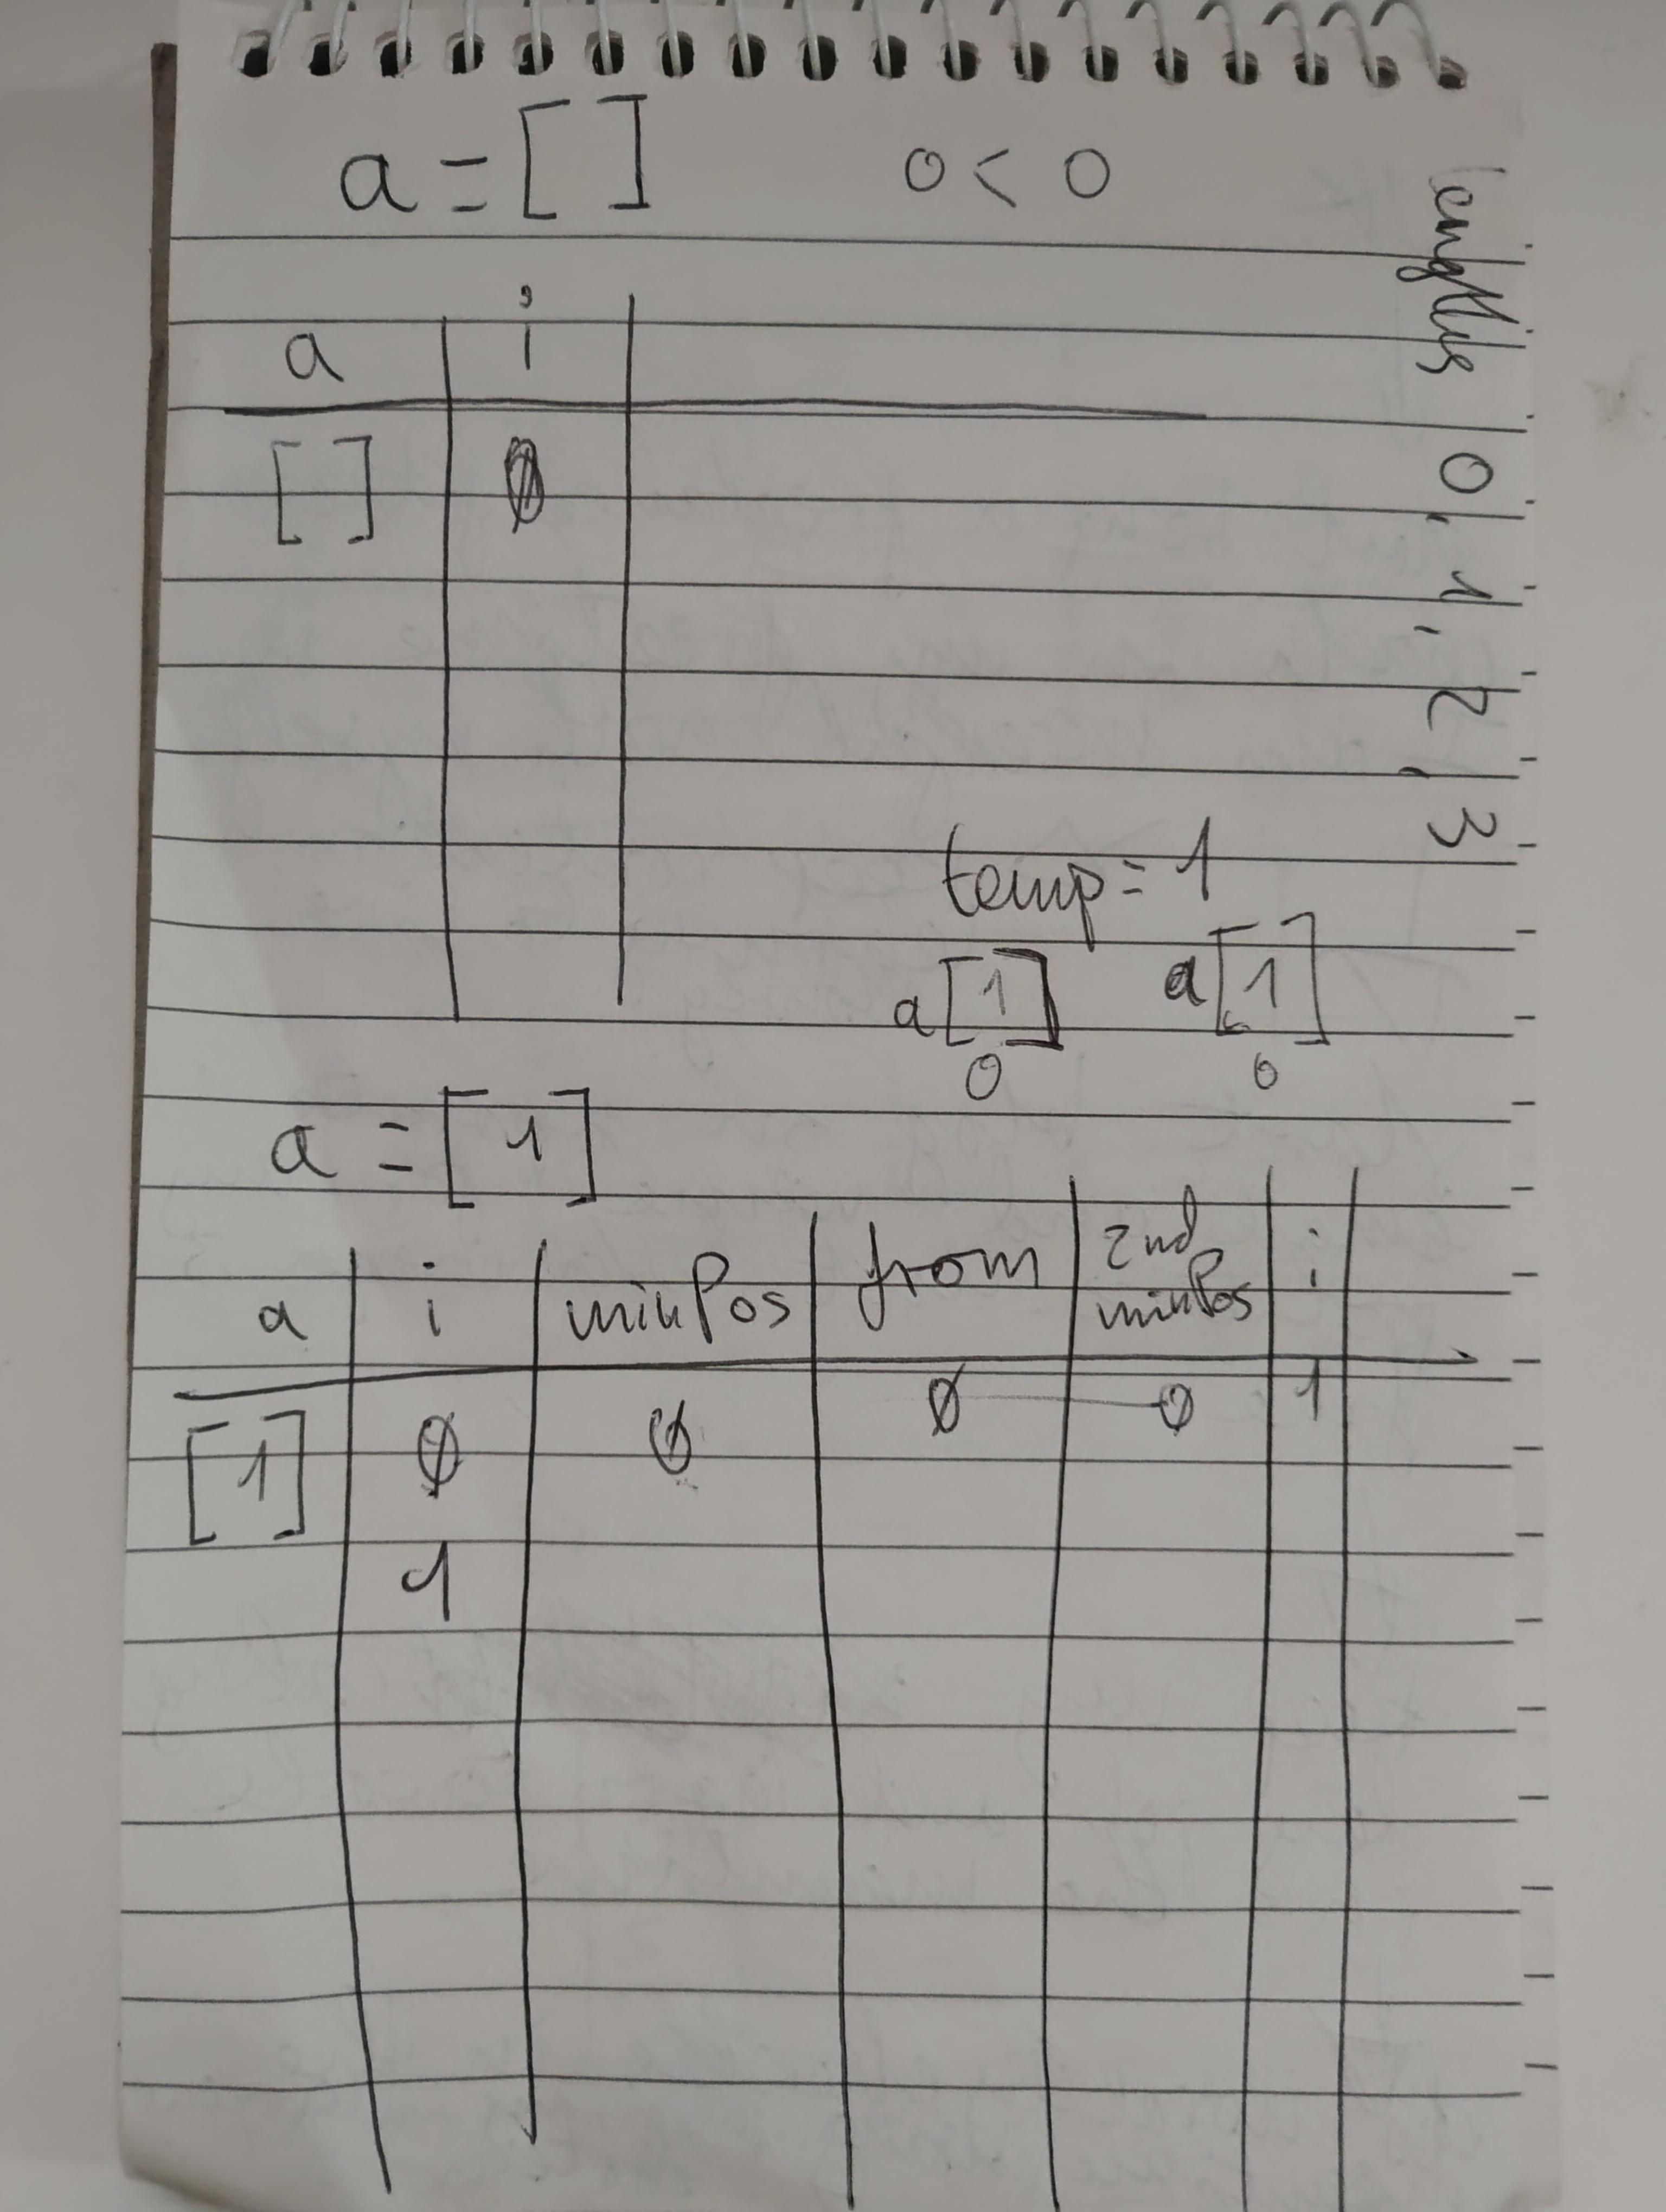 a = [ ] 0 < 0
lengths 0, 1, 2, 3
a i
[ ] 0
temp = 1
a[1] a[1]
0 0
a = [1]
a i minPos from 2nd minPos i
[1] 0 0 0 0 1
1